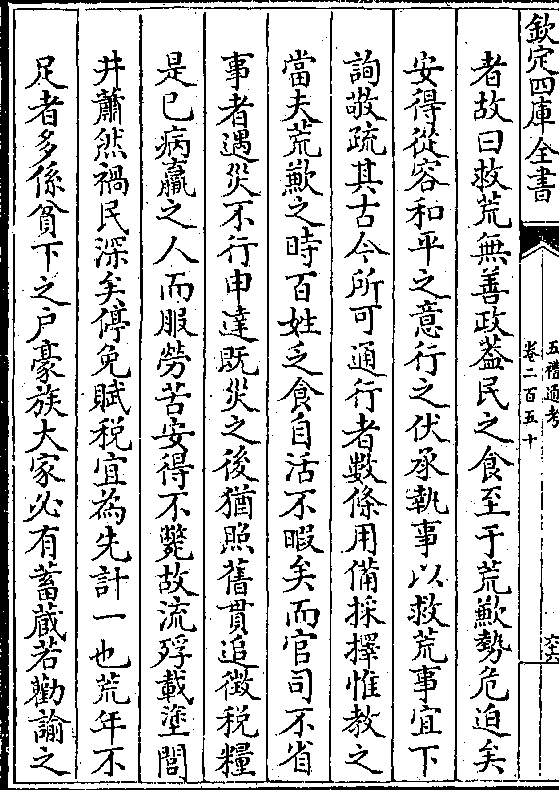 欽定四庫全書
五禮通考
卷二百五十
者故曰救荒無善政葢民之食至于荒歉勢危迫矣
安得從容和平之意行之伏承執事以救荒事宜下
詢敬疏其古今所可通行者數條用備採擇惟教之
當夫荒歉之時百姓乏食自活不暇矣而官司不省
事者遇災不行申達既災之後猶照舊貫追徵税糧
是已病羸之人而服勞苦安得不斃故流殍載塗閭
井蕭然禍民深矣停免賦税宜為先計一也荒年不
足者多係貧下之户豪族大家必有蓄蔵若勸諭之